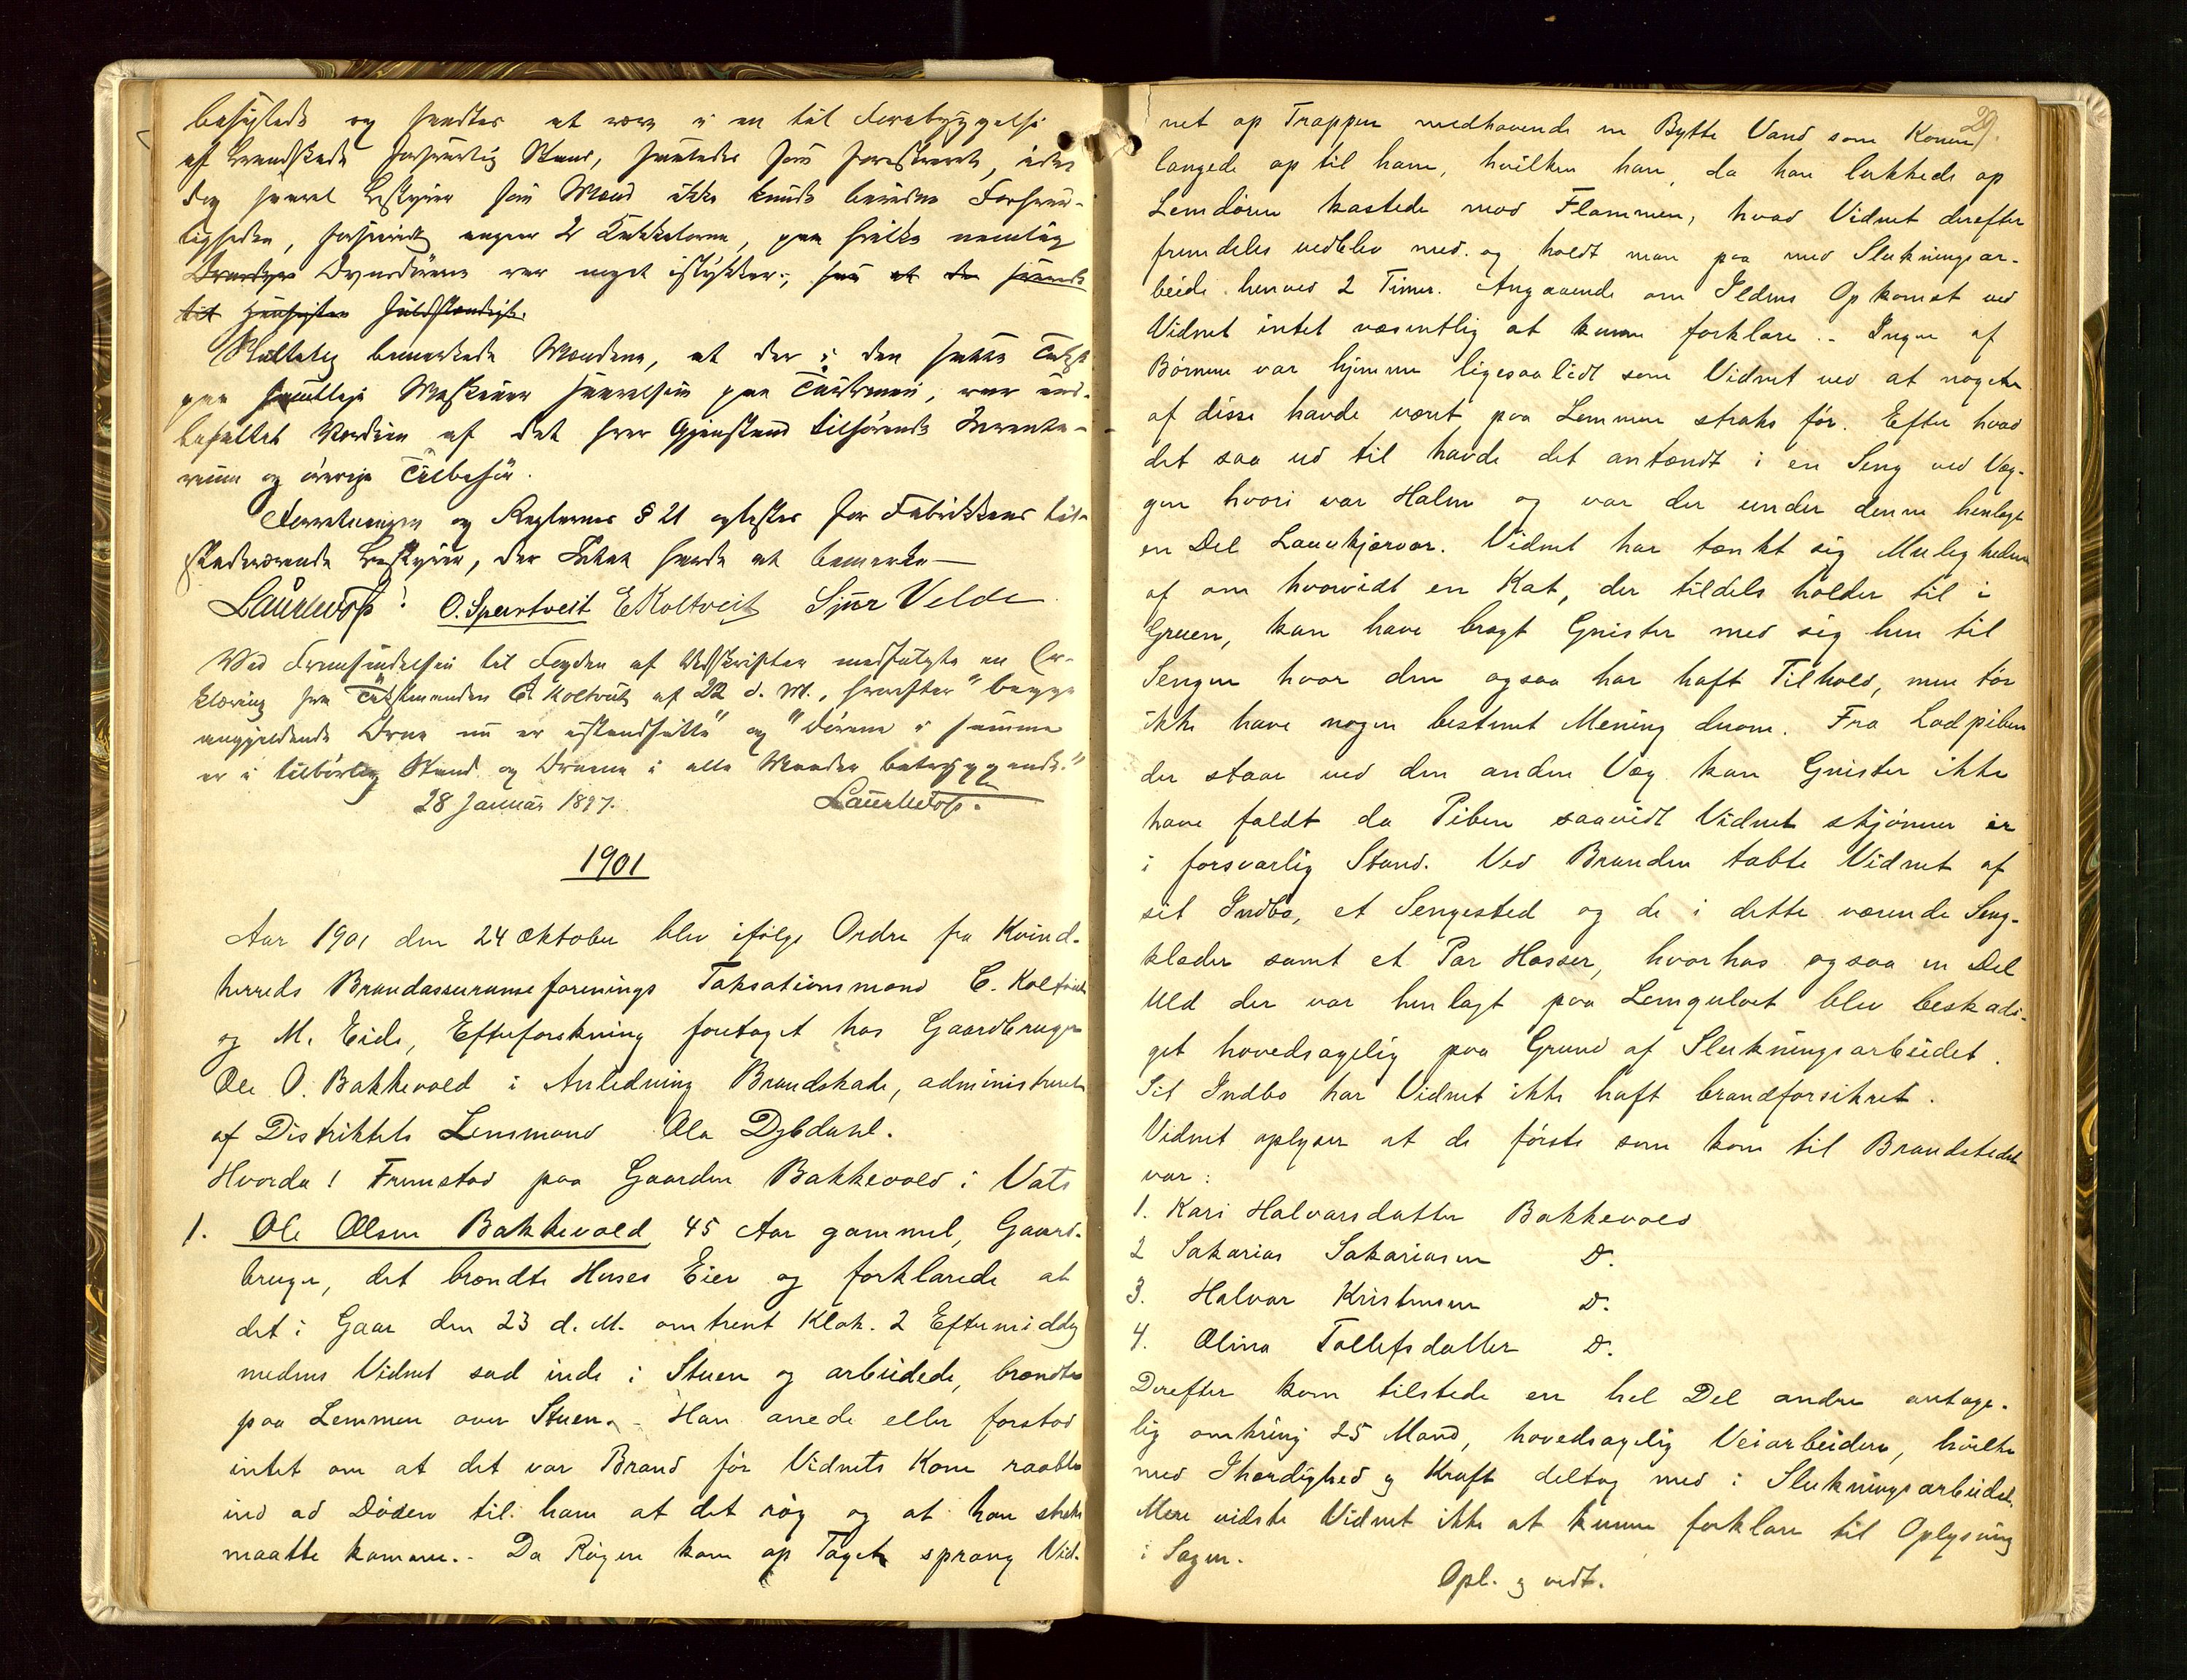 besigtedes og fandtes at være i en til Forebyggelse
af Brandskade forsvarlig Stand,
dog
ligheden,
Ovnsdørene var noget istykker;
Sluttelig bemærkede Mændene, at der i den
befattet Værdien af det hver Gjenstand tilhørende Invента-
rium og øvrige Tilbehør.
Forretningen og Reglernes § 21 oplæstes for Fabrikkens til-
stedeværende Bestyrer, der Intet havde at bemærke
O. Spartveit E Koltveit Sjur Velde
Ved Fremsendelsen til Fogden af Udskriften medfulgte en Er-
klæring fra Takstmanden E. Koltveit af 22 d. M., hvorefter "begge
angjældende Ovne nu er istandsatte" og "Dørene i samme
er i tilbørlig Stand og Ovnene i alle Maader betryggende."
28 Januar 1897.
1901
Aar 1901 den 24 Oktober blev ifølge Ordre fra Kvind-
herreds Brandassuranseforenings Taksationsmænd E. Koltveit
og M. Eide, Efterforskning foretaget hos Gaardbruger
Ole O. Bakkevold i Anledning Brandskade, administreret
af Distriktets Lensmand Ola Dybdahl.
Hvorda! Fremstod paa Gaarden Bakkevold i Vats
1. Ole Olsen Bakkevold 45 Aar gammel, Gaard-
bruger, det brændte Huses Eier og forklarede at
det i Gaar den 23 d. M. omtrent Klok. 2 Eftermiddag
medens Vidnet sad inde i Stuen og arbeidede, brændte
paa Lemmen over Stuen. - Han anede eller forstod
intet om at det var Brand før Vidnets Kone raabte
ind ad Døden til ham at det røg og at han straks
maatte komme. - Da Røgen kom op Taget sprang Vid-
29.
net op Trappen medhavende en Bøtte Vand som Konen
langede op til ham, hvilken han, da han lukkede op
Lemdøren kastede mod Flammen, hvad Vidnet derefter
fremdeles vedblev med. og holdt man paa med Slukningsar-
beide henved 2 Timer. Angaaende om Ildens Opkomst ved
Vidnet intet væsentlig at kunne forklare. - Ingen af
Børnene var hjemme ligesaalidt som Vidnet ved at nogen
af disse havde været paa Lemmen straks før. Efter hvad
det saa ud til havde det antændt i en Seng ved Væg-
gen hvori var Halm og var der under denne henlagt
en Del Lauvkjærver. Vidnet har tænkt sig Muligheden
af om hvorvidt en Kat, der tildels holder til i
Gruen, kan have bragt Gnister med sig hen til
Sengen hvor den ogsaa har haft Tilhold, men tør
ikke have nogen bestemt Mening derom. Fra Lodpiben
der staar ved den anden Væg kan Gnister ikke
have faldt da Piben saavidt Vidnet skjønner er
i forsvarlig Stand. Ved Branden tabte Vidnet af
sit Indbo, et Sengested og de i dette værende Seng-
klæder samt et Par Hosser, hvorhos ogsaa en Del
Uld der var henlagt paa Lemgulvet blev beskadi-
get hovedsagelig paa Grund af Slukningsarbeidet.
Sit Indbo har Vidnet ikke haft brandforsikret.
Vidnet oplyser at de første som kom til Brandstedet
var:
1. Kari Halvarsdatter Bakkevold
2 Sakarias Sakariasen D.
3. Halvar Kristensen D.
4. Olina Tollefsdatter D.
Derefter kom tilstede en hel Del andre antage-
lig omkring 25 Mand, hovedsagelig Veiarbeidere, hvilke
med Ihærdighed og Kraft deltog med i Slukningsarbeidet.
Mere vidste Vidnet ikke at kunne forklare til Oplysning
i Sagen.
Opl. og vedt.